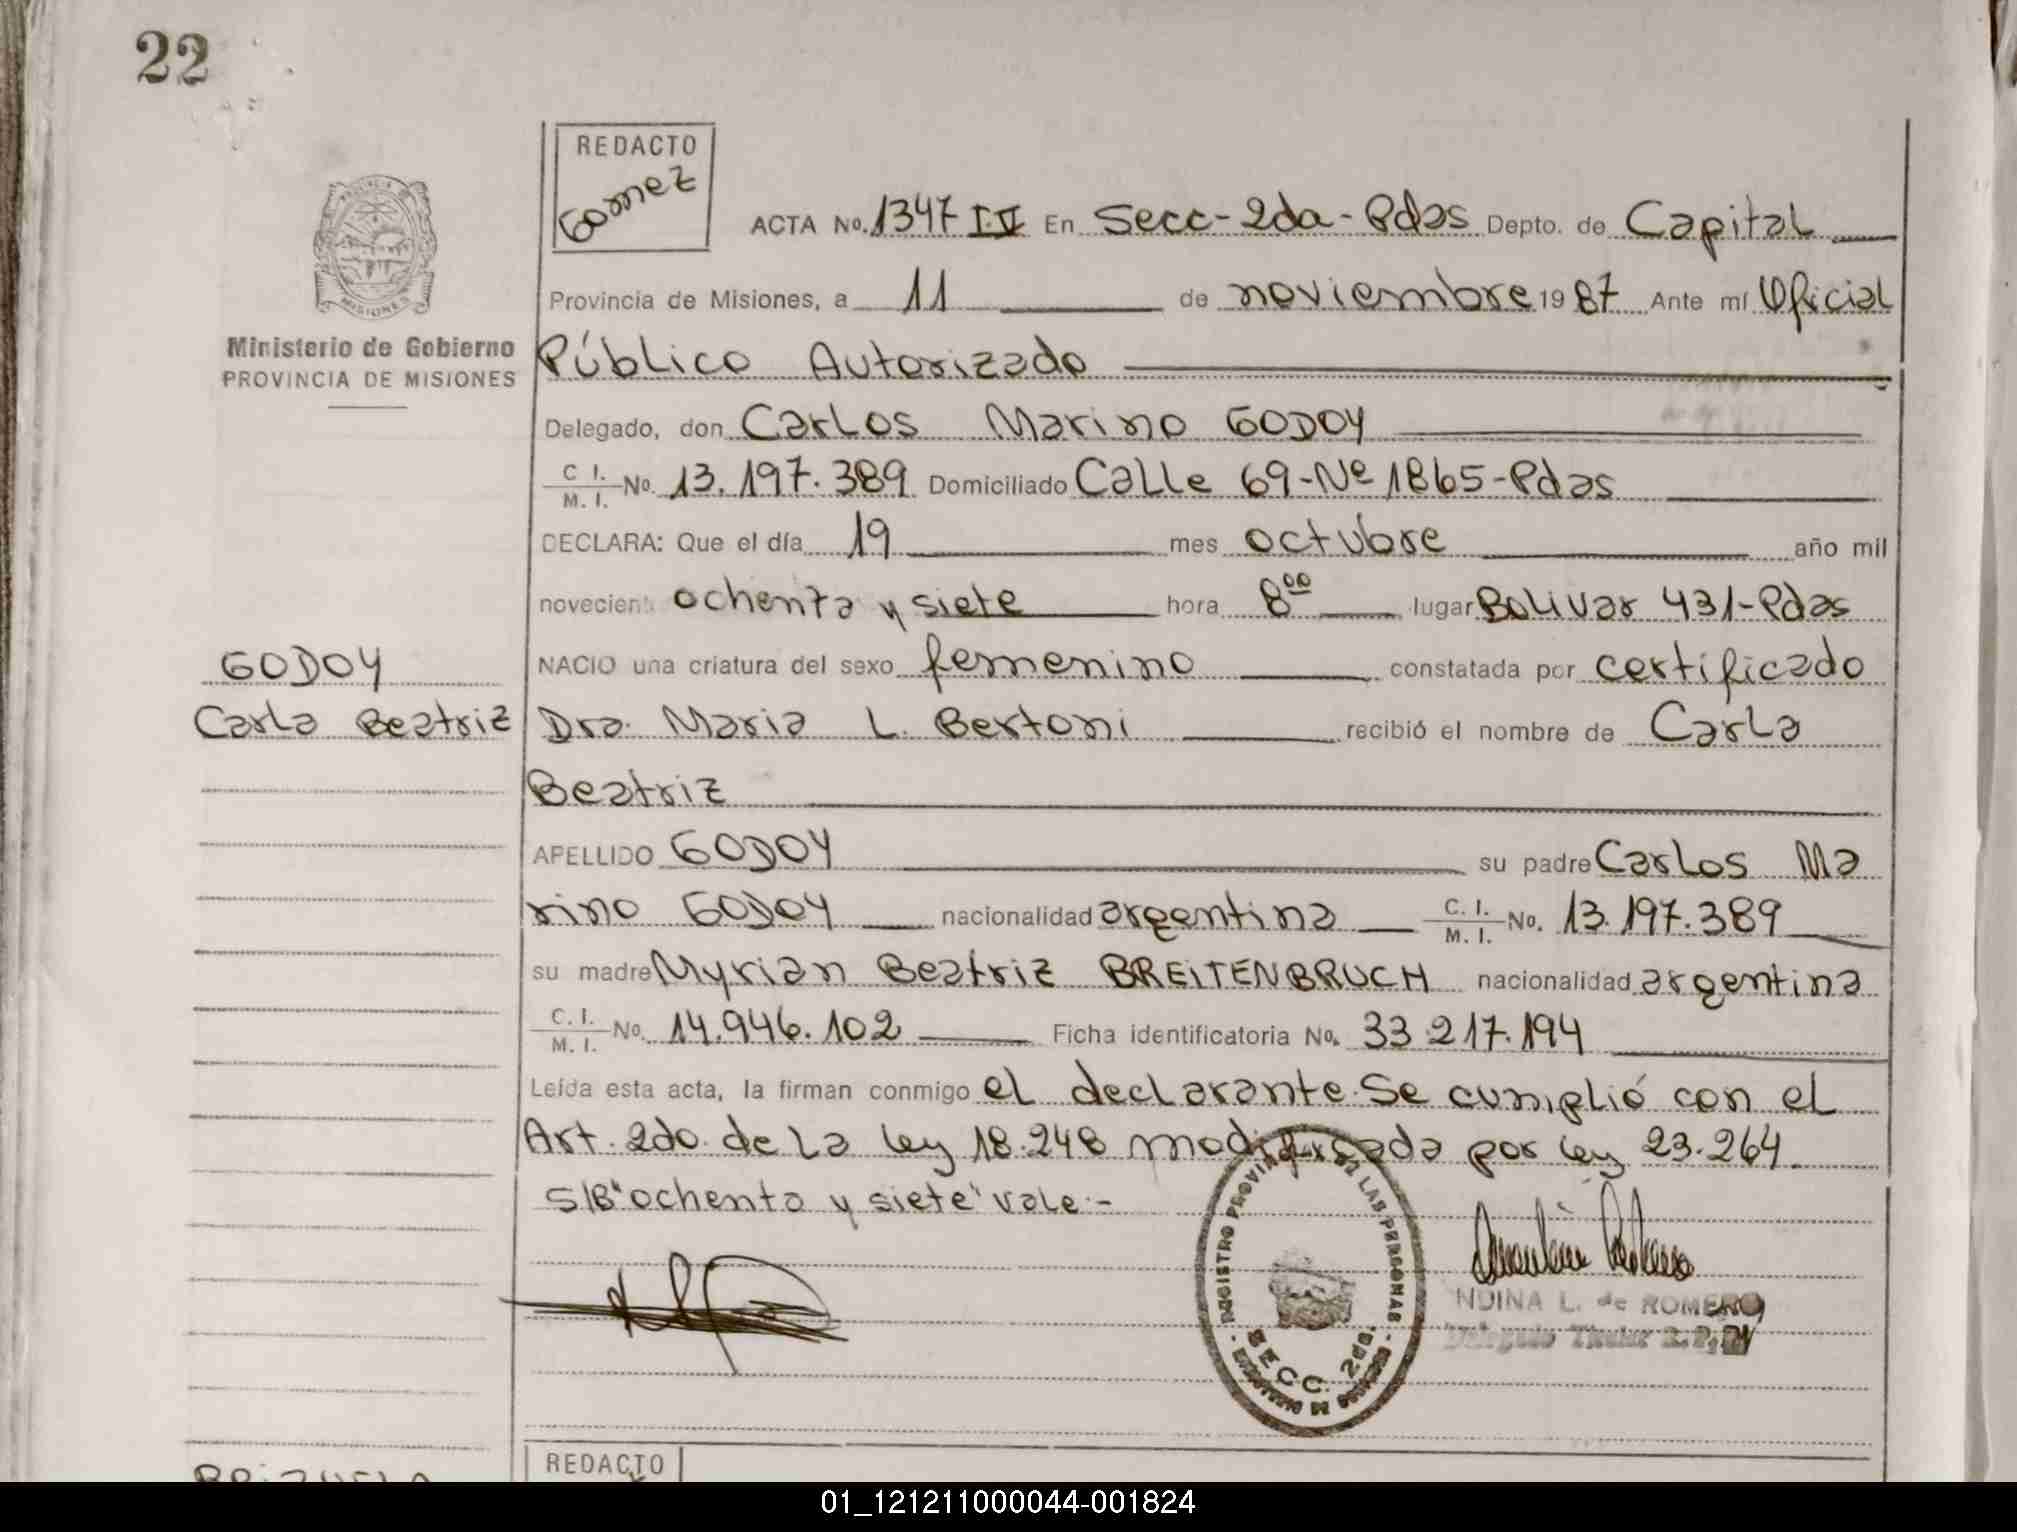 22
REDACTO
Gomez
PROVINCIA DE
MISIONES
Ministerio de Gobierno
PROVINCIA DE MISIONES
ACTA No. 1347 T.V En Secc-2da-Pdas Depto. de Capital
Provincia de Misiones, a 11 de noviembre 19 87 Ante mí Oficial
Público Autorizado
Delegado, don Carlos Marino GODOY
C. I. / M. I. No. 13.197.389 Domiciliado Calle 69-Nº 1865-Pdas
DECLARA: Que el día 19 mes octubre año mil
novecient ochenta y siete hora 8⁰⁰ lugar Bolivar 431-Pdas
NACIO una criatura del sexo femenino constatada por certificado
GODOY
Carla Beatriz
Dra. Maria L. Bertoni recibió el nombre de Carla
Beatriz
APELLIDO GODOY su padre Carlos Ma
rino GODOY nacionalidad argentina C. I. / M. I. No. 13.197.389
su madre Myrian Beatriz BREITENBRUCH nacionalidad argentina
C. I. / M. I. No. 14.946.102 Ficha identificatoria No. 33.217.194
Leída esta acta, la firman conmigo el declarante. Se cumplió con el
Art. 2do. de La ley 18.248 modificada por ley 23.264
S/B "ochenta y siete" vale.-
REGISTRO PROVINCIAL DE LAS PERSONAS
SECC. 2da.
NDINA L. de ROMERO
Delegado Titular R.P.
REDACTO
01_121211000044-001824